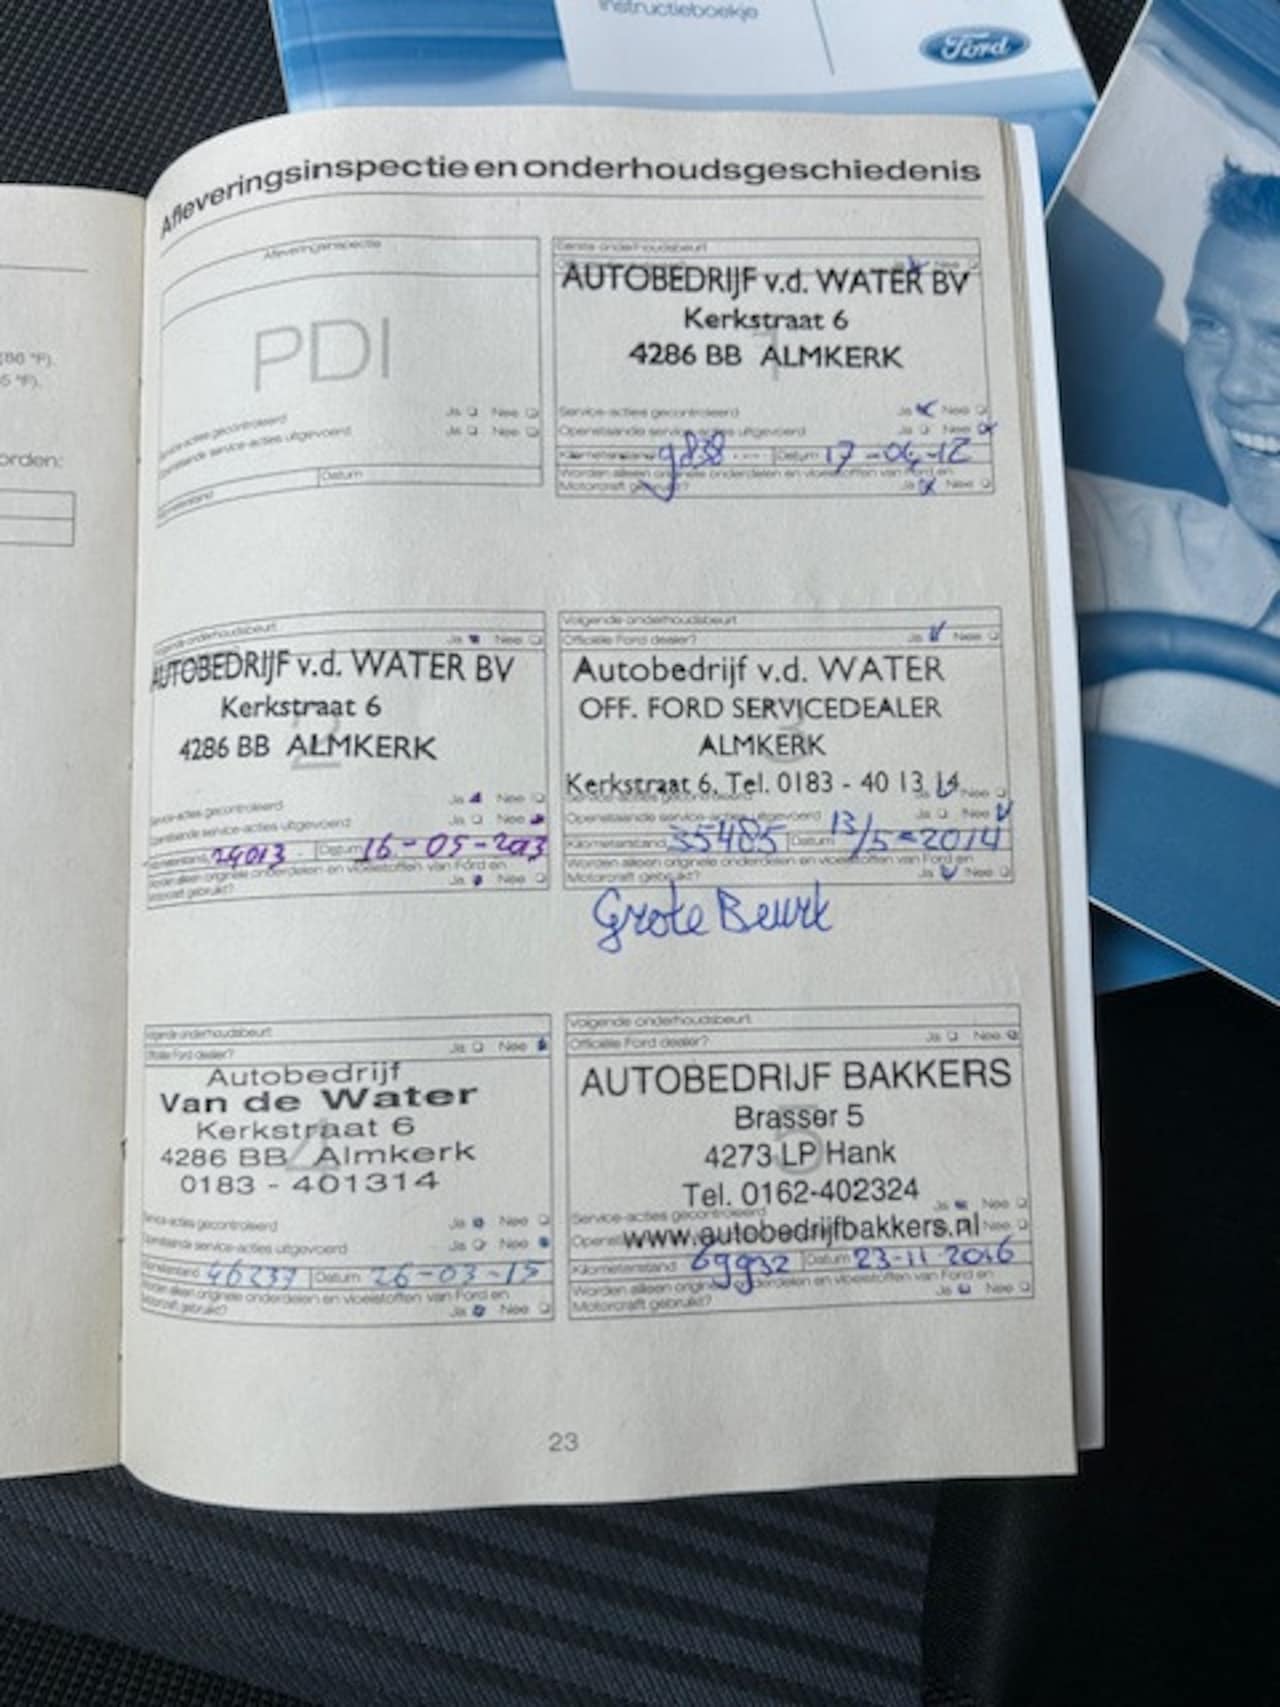 Instructieboekje
Ford
(86 °F).
5 °F).
orden:
Afleveringsinspectie en onderhoudsgeschiedenis
Afleveringsinspectie
PDI
Ja Nee
Ja Nee
Datum
Eerste onderhoudsbeurt
Nee
AUTOBEDRIJF v.d. WATER BV
Kerkstraat 6
4286 BB ALMKERK
1
Service-acties gecontroleerd Ja Nee
Openstaande service-acties uitgevoerd Ja Nee
Kilometerstand 9838 Datum 17-04-12
Worden alleen originele onderdelen en vloeistoffen van Ford en
Motorcraft gebruikt? Ja Nee
Volgende onderhoudsbeurt
Ja Nee
AUTOBEDRIJF v.d. WATER BV
Kerkstraat 6
4286 BB ALMKERK
2
Service-acties gecontroleerd Ja Nee
Openstaande service-acties uitgevoerd Ja Nee
Kilometerstand 24013 Datum 16-05-2013
Worden alleen originele onderdelen en vloeistoffen van Ford en
Motorcraft gebruikt? Ja Nee
Volgende onderhoudsbeurt
Officiële Ford dealer? Ja Nee
Autobedrijf v.d. WATER
OFF. FORD SERVICEDEALER
3
ALMKERK
Kerkstraat 6, Tel. 0183 - 40 13 14
Service-acties gecontroleerd Nee
Openstaande service-acties uitgevoerd Ja Nee
Kilometerstand 35485 Datum 13/5-2014
Worden alleen originele onderdelen en vloeistoffen van Ford en
Motorcraft gebruikt? Ja Nee
Grote Beurt
Volgende onderhoudsbeurt
Officiële Ford dealer? Ja Nee
Autobedrijf
Van de Water
Kerkstraat 6
4286 BB Almkerk
4
0183 - 401314
Service-acties gecontroleerd Ja Nee
Openstaande service-acties uitgevoerd Ja Nee
Kilometerstand 46237 Datum 26-03-15
Worden alleen originele onderdelen en vloeistoffen van Ford en
Motorcraft gebruikt? Ja Nee
Volgende onderhoudsbeurt
Officiële Ford dealer? Ja Nee
AUTOBEDRIJF BAKKERS
Brasser 5
4273 LP Hank
5
Tel. 0162-402324
Service-acties gecontroleerd Ja Nee
www.autobedrijfbakkers.nl Nee
Kilometerstand 69932 Datum 23-11 2016
Worden alleen originele onderdelen en vloeistoffen van Ford en
Motorcraft gebruikt? Ja Nee
23